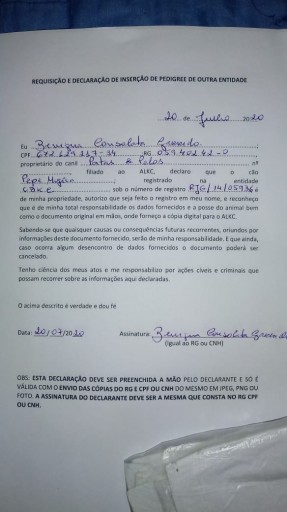 REQUISIÇÃO E DECLARAÇÃO DE INSERÇÃO DE PEDIGREE DE OUTRA ENTIDADE
20 de Julho 2020
Eu Benigna Consolata
CPF RG
proprietário do canil Patas & Pelos nº
filiado ao ALKC, declaro que o cão
Pepe , registrado na entidade
CBKC sob o número de registro RJG/14/05936
de minha propriedade, autorizo que seja feito o registro em meu nome, e reconheço
que é de minha total responsabilidade os dados fornecidos e a posse do animal bem
como o documento original em mãos, onde forneço a cópia digital para o ALKC.
Sabendo-se que quaisquer causas ou consequências futuras recorrentes, oriundos por
informações deste documento fornecido, serão de minha responsabilidade. E que ainda,
caso ocorra algum desencontro de dados fornecidos o documento poderá ser
cancelado.
Tenho ciência dos meus atos e me responsabilizo por ações cíveis e criminais que
possam recorrer sobre as informações aqui declaradas.
O acima descrito é verdade e dou fé
Data: 20/07/2020 Assinatura: Benigna Consolata
(Igual ao RG ou CNH)
OBS: ESTA DECLARAÇÃO DEVE SER PREENCHIDA A MÃO PELO DECLARANTE E SÓ É
VÁLIDA COM O ENVIO DAS CÓPIAS DO RG E CPF OU CNH DO MESMO EM JPEG, PNG OU
FOTO. A ASSINATURA DO DECLARANTE DEVE SER A MESMA QUE CONSTA NO RG CPF
OU CNH.